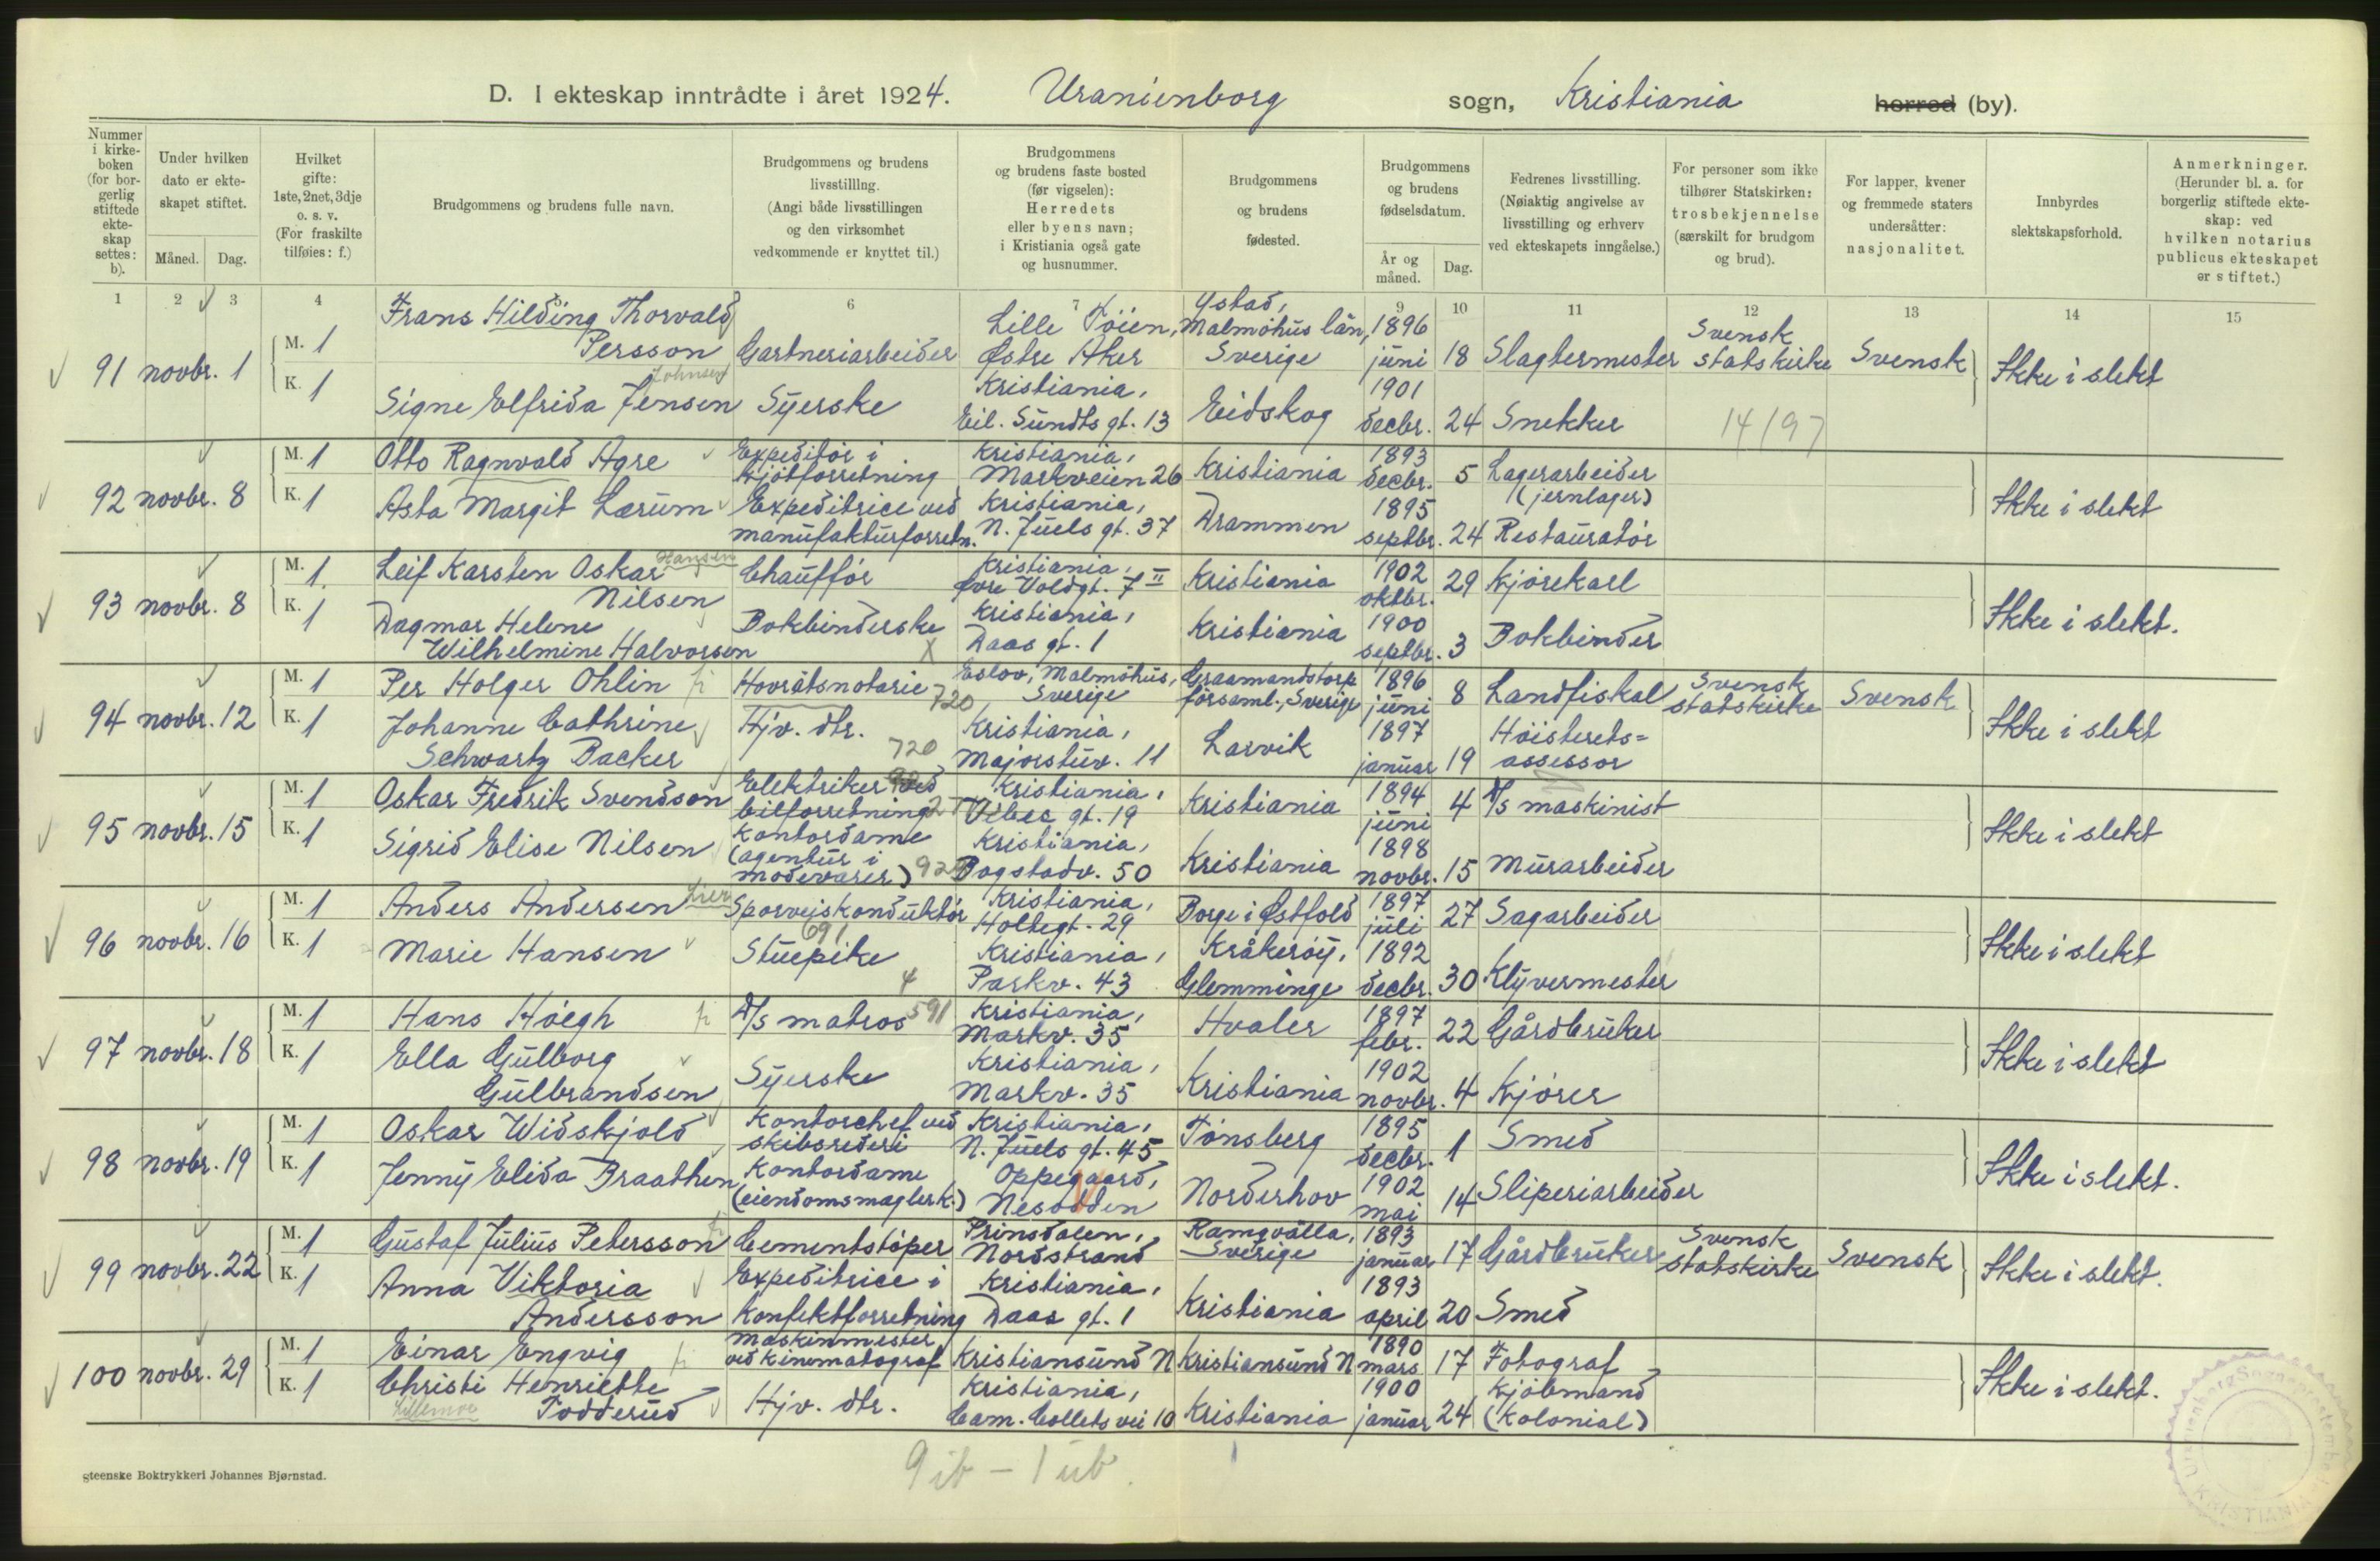 D. I ekteskap inntrådte i året 1924. Uranienborg sogn, Kristiania herred (by).
Nummer i kirkeboken (for borgerlig stiftede ekteskap settes: b).
Under hvilken dato er ekteskapet stiftet.
Måned. Dag.
Hvilket gifte: 1ste, 2net, 3dje o. s. v. (For fraskilte tilføies: f.)
Brudgommens og brudens fulle navn.
Brudgommens og brudens livsstilling. (Angi både livsstillingen og den virksomhet vedkommende er knyttet til.)
Brudgommens og brudens faste bosted (før vigselen): Herredets eller byens navn; i Kristiania også gate og husnummer.
Brudgommens og brudens fødested.
Brudgommens og brudens fødselsdatum.
År og måned. Dag.
Fedrenes livsstilling. (Nøiaktig angivelse av livsstilling og erhverv ved ekteskapets inngåelse.)
For personer som ikke tilhører Statskirken: trosbekjennelse (særskilt for brudgom og brud).
For lapper, kvener og fremmede staters undersåtter: nasjonalitet.
Innbyrdes slektskapsforhold.
Anmerkninger. (Herunder bl. a. for borgerlig stiftede ekteskap: ved hvilken notarius publicus ekteskapet er stiftet.)
1 2 3 4 5 6 7 9 10 11 12 13 14 15
91 novbr. 1
M. 1 Frans Hilding Thorvald Persson Gartneriarbeider Lille Töien, Østre Aker Ystad, Malmöhus län, Sverige 1896 juni 18 Slagtermester Svensk statskirke Svensk Ikke i slekt
K. 1 Signe Elfrida Jensen Johnsen Syerske Kristiania, Eil. Sundts gt. 13 Eidskog 1901 decbr. 24 Snekker 14/97
92 novbr. 8
M. 1 Otto Ragnvald Agre Expeditör i kjötforretning Kristiania, Markveien 26 Kristiania 1893 decbr. 5 Lagerarbeider (jernlager) Ikke i slekt
K. 1 Asta Margit Lærum Expeditrice ved manufakturforretn. Kristiania, N. Juels gt. 37 Drammen 1895 septbr. 24 Restauratör
93 novbr. 8
M. 1 Leif Karsten Oskar Hansen Nilsen Chaufför Kristiania, Övre Voldgt. 7 II Kristiania 1902 oktbr. 29 Kjörekarl Ikke i slekt.
K. 1 Dagmar Helene Wilhelmine Halvorsen Bokbinderske Kristiania, Daas gt. 1 Kristiania 1900 septbr. 3 Bokbinder
94 novbr. 12
M. 1 Per Holger Ohlin Hovrätsnotarie 720 Eslov, Malmöhus, Sverige Graamandstorp församl., Sverige 1896 juni 8 Landfiskal Svensk statskirke Svensk Ikke i slekt
K. 1 Johanne Cathrine Schwartz Backer Hjv. dtr. 720 Kristiania, Majorstuv. 11 Larvik 1897 januar 19 Höisterets=assessor
95 novbr. 15
M. 1 Oskar Fredrik Svendson Elektriker ved bilforretning Kristiania, Vibes gt. 19 Kristiania 1894 juni 4 D/s maskinist Ikke i slekt
K. 1 Sigrid Elise Nilsen Kontordame (agentur i modevarer) Kristiania, Bogstadv. 50 Kristiania 1898 novbr. 15 Murarbeider
96 novbr. 16
M. 1 Anders Andersen Lier Sporveiskonduktör 691 Kristiania, Holtegt. 29 Borge i Østfold 1897 juli 27 Sagarbeider Ikke i slekt
K. 1 Marie Hansen Stuepike 4 Kristiania, Parkv. 43 Kråkeröy, Glemminge 1892 decbr. 30 Klyvermester
97 novbr. 18
M. 1 Hans Höegh D/s matros 591 Kristiania, Markv. 35 Hvaler 1897 febr. 22 Gårdbruker Ikke i slekt
K. 1 Ella Gulborg Gulbrandsen Syerske Kristiania, Markv. 35 Kristiania 1902 novbr. 4 Kjörer
98 novbr. 19
M. 1 Oskar Widskjold Kontorchef ved skibsrederi Kristiania, N. Juels gt. 45 Tönsberg 1895 decbr. 1 Smed Ikke i slekt.
K. 1 Jenny Elida Braathen Kontordame (eiendomsmaglerk.) Oppegaard, Nesodden Norderhov 1902 mai 14 Sliperiarbeider
99 novbr. 22
M. 1 Gustaf Julius Petersson Cementstöper Prinsdalen, Nordstrand Ramqvälla, Sverige 1893 januar 17 Gårdbruker Svensk statskirke Svensk Ikke i slekt.
K. 1 Anna Viktoria Andersson Expeditrice i Konfektforretning Kristiania, Daas gt. 1 Kristiania 1893 april 20 Smed
100 novbr. 29
M. 1 Einar Engvig maskinmester ved kinematograf Kristiansund N Kristiansund N 1890 mars 17 Fotograf Ikke i slekt.
K. 1 Christi Henriette Todderud Hjv. dtr. Kristiania, Cam. Colletts vei 10 Kristiania 1900 januar 24 Kjöbmand (Kolonial)
9 ib – 1 ub.
Steenske Boktrykkeri Johannes Bjørnstad.